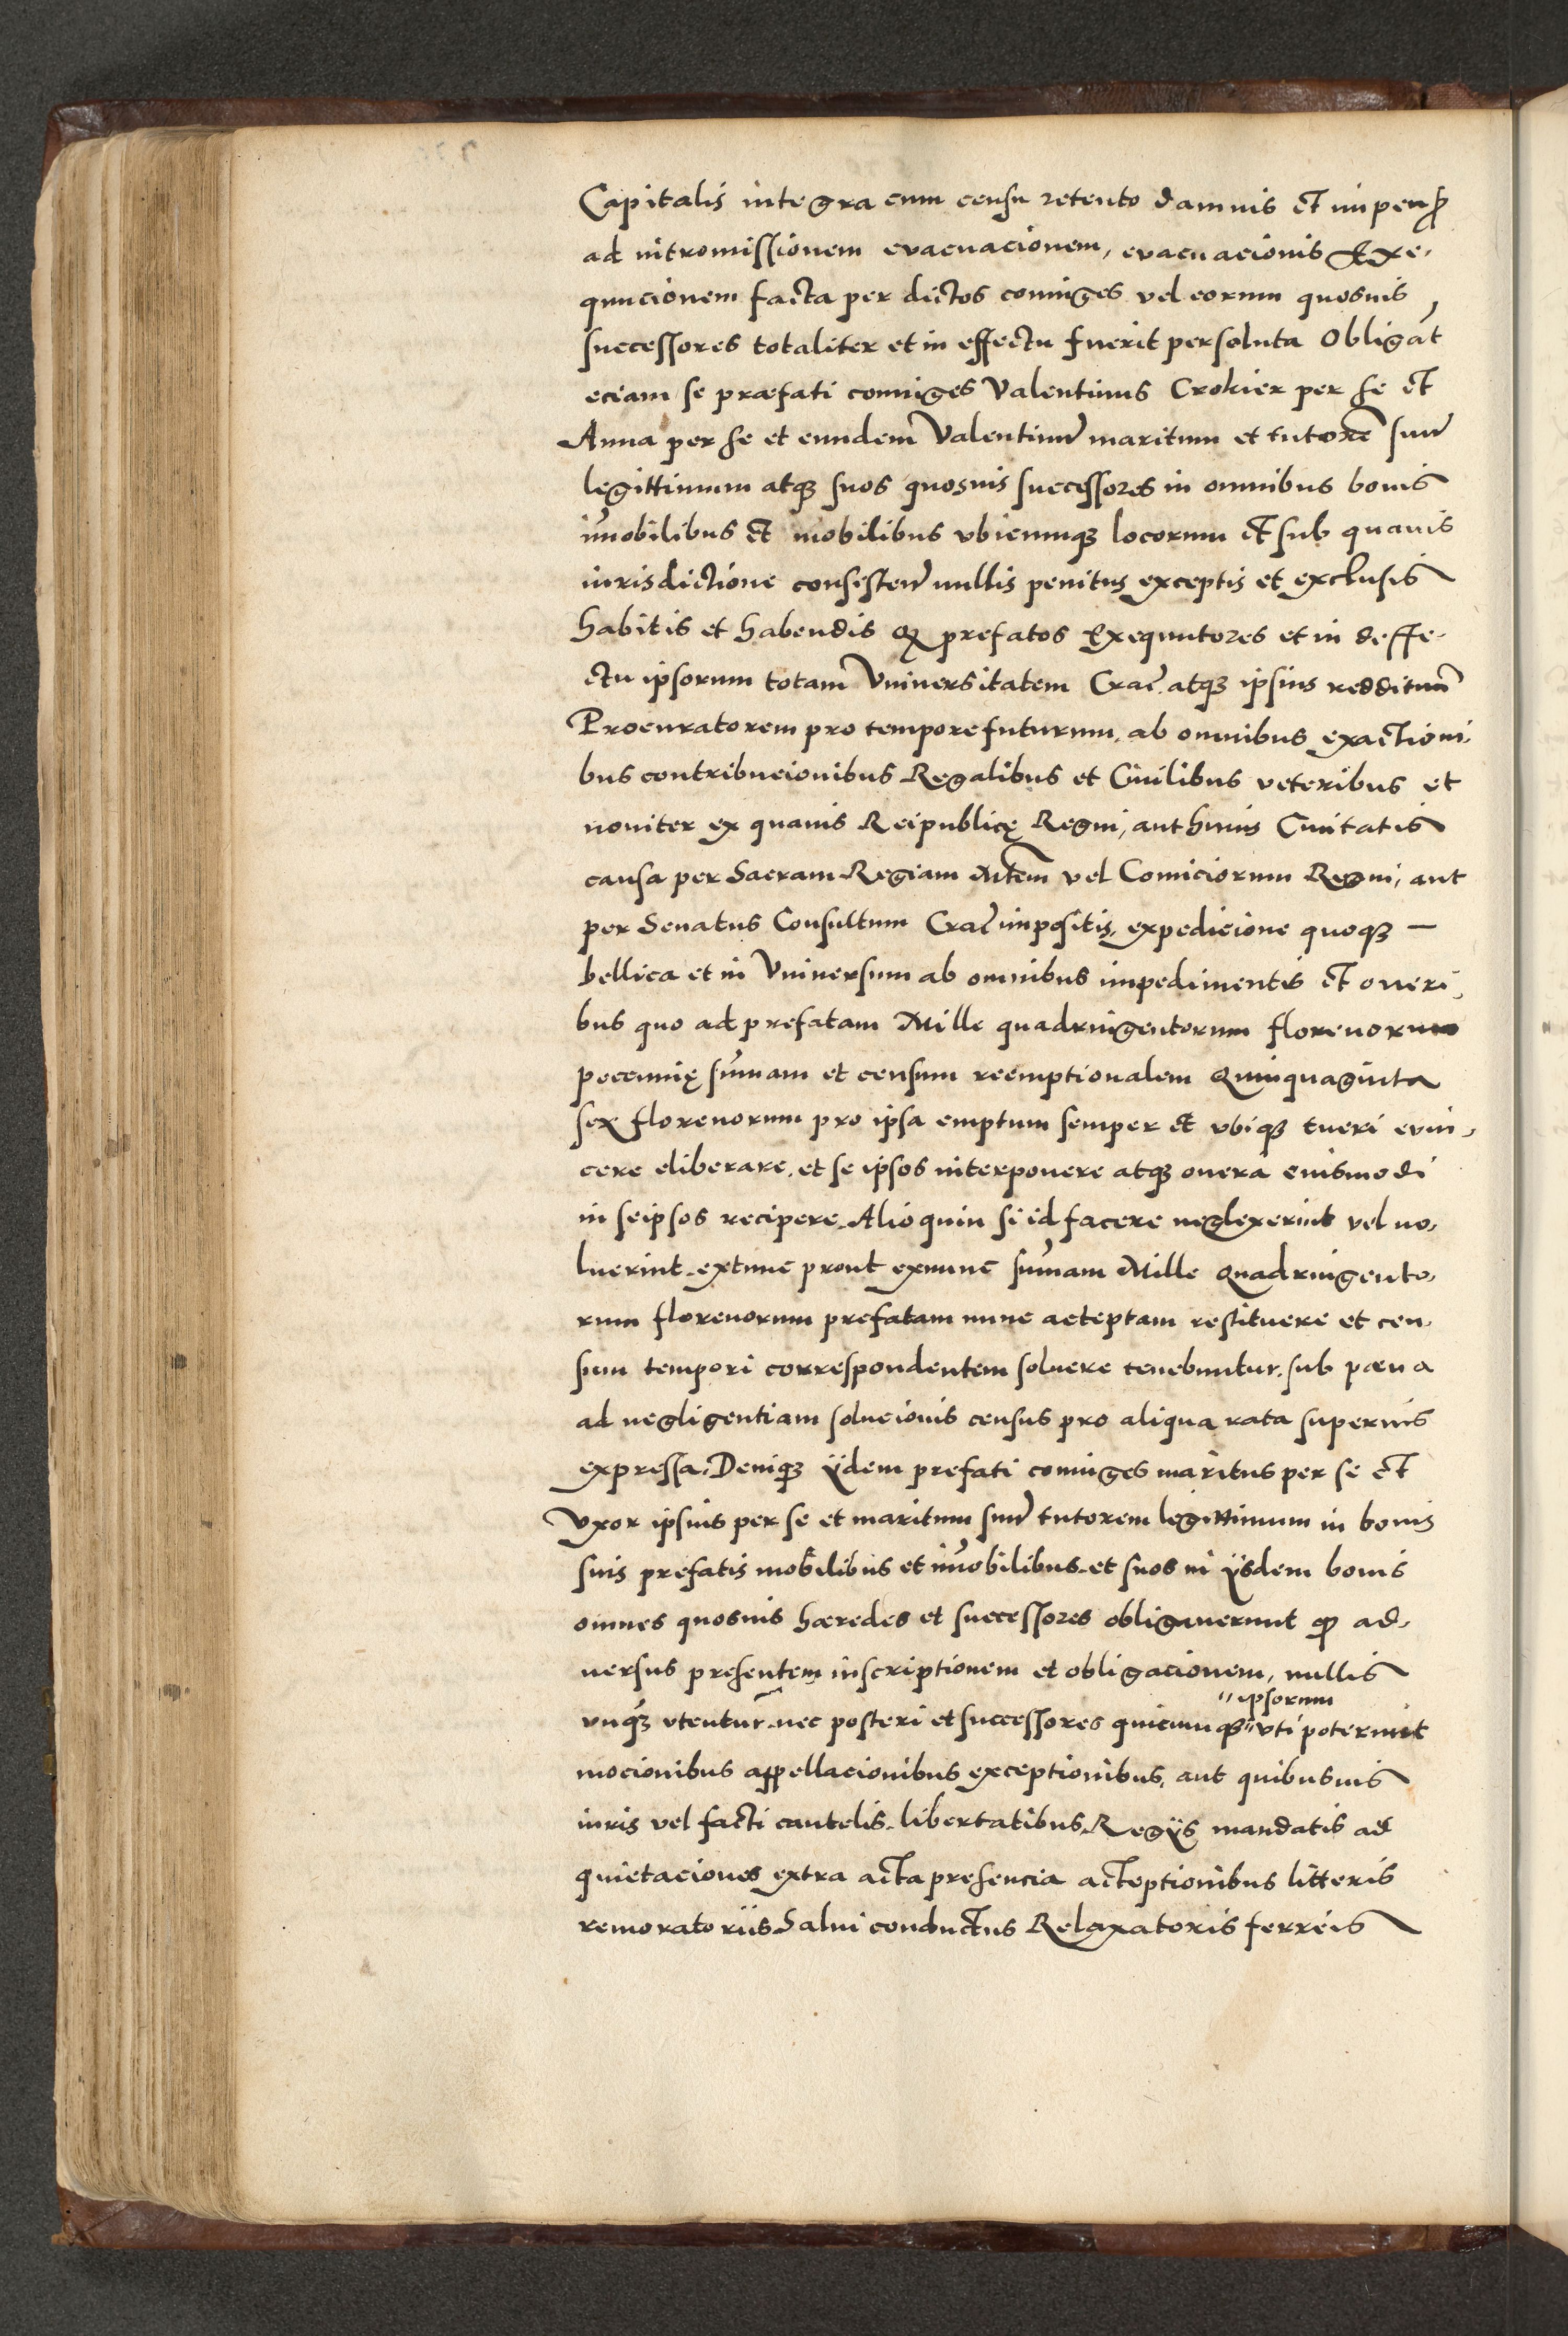 Capitalis integra cum censu retento damnis et impen̄
ad intromissionem evacuacionem, evacuacionis Exe-
quucionem facta per dictos coniuges vel eorum quosuis
successores totaliter et in effectu fuerit persoluta Obligāt
eciam se præfati coniuges Valentinus Crokier per se et
Anna per se et eundem Valentinū maritum et tutorē suū
legittimum atqȝ suos quosuis successores in omnibus bonis
im̄obilibus et mobilibus vbicunqȝ locorum et sub quauis
iurisdictione consisteñ nullis penitus exceptis et exclusis
habitis et habendis qȝ prefatos Exequutores et in deffe-
ctu ipsorum totam Vniversitatem Crac̄ atqȝ ipsius reddituū
Procuratorem pro tempore futurum, ab omnibus exactioni-
bus contribucionibus Regalibus et Ciuilibus veteribus et
noviter ex quauis Reipublicę Regni, aut huius Ciuitatis
causa per Sacram Regiam Mtem̄ vel Comiciorum Regni, aut
per Senatus Consultum Crac̄ impositis, expedicione quoqȝ —
bellica et in Vniuersum ab omnibus impedimentis et oneri,
bus quo ad prefatam Mille quadringentorum florenorum
peccunię sum̄am et censum reemptionalem Quinquaginta
sex florenorum pro ipsa emptum semper et vbiqȝ tueri evin,
cere eliberare, et se ipsos interponere atqȝ onera euismodi
in seipsos recipere. Alioquin si id facere neglexerint vel no,
luerint extunc prout exnunc sum̄am Mille Quadringento,
rum florenorum prefatam nunc acceptam restituere et cen-
sum tempori correspondentem soluere tenebuntur. sub pœna
ad negligentiam solucionis census pro aliqua rata superius
expressa. Deniqȝ ijdem prefati coniuges maritus per se et
Vxor ipsius per se et maritum suū tutorem legittimum in bonis
suis prefatis mobilibus et im̄obilibus et suos in ijsdem bonis
omnes quosuis hæredes et successores obligauerunt qȝ ad,
uersus presentem inscriptionem et obligacionem, nullis
vnqȝ vtentur nec posteri et successores quicunqȝ "ipsorum vti poterunt
mocionibus appellacionibus exceptionibus, aut quibusuis
iuris vel facti cautelis libertatibus Regijs mandatis ad
quietaciones extra acta presencia acceptionibus litteris
remoratoriis Salui conductus Relaxatoris ferreis